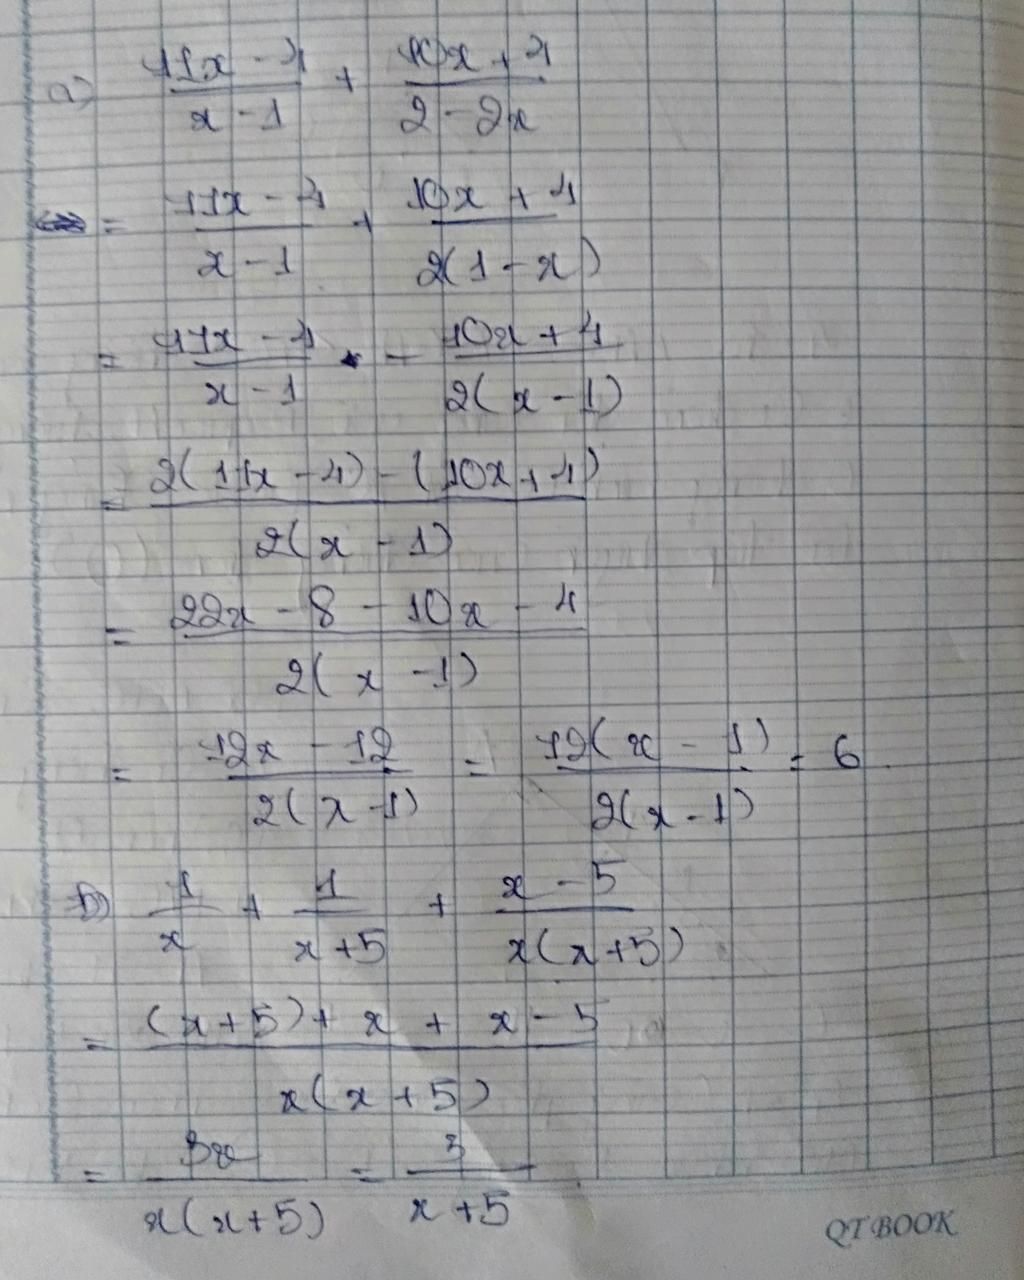 a) (11x - 4)/(x - 1) + (10x + 4)/(2 - 2x)
= (11x - 4)/(x - 1) + (10x + 4)/(2(1 - x))
= (11x - 4)/(x - 1) - (10x + 4)/(2(x - 1))
= (2(11x - 4) - (10x + 4))/(2(x - 1))
= (22x - 8 - 10x - 4)/(2(x - 1))
= (12x - 12)/(2(x - 1)) = (12(x - 1))/(2(x - 1)) = 6.
b) 1/x + 1/(x + 5) + (x - 5)/(x(x + 5))
= ((x + 5) + x + x - 5)/(x(x + 5))
= 3x/(x(x + 5)) = 3/(x + 5)
QT BOOK